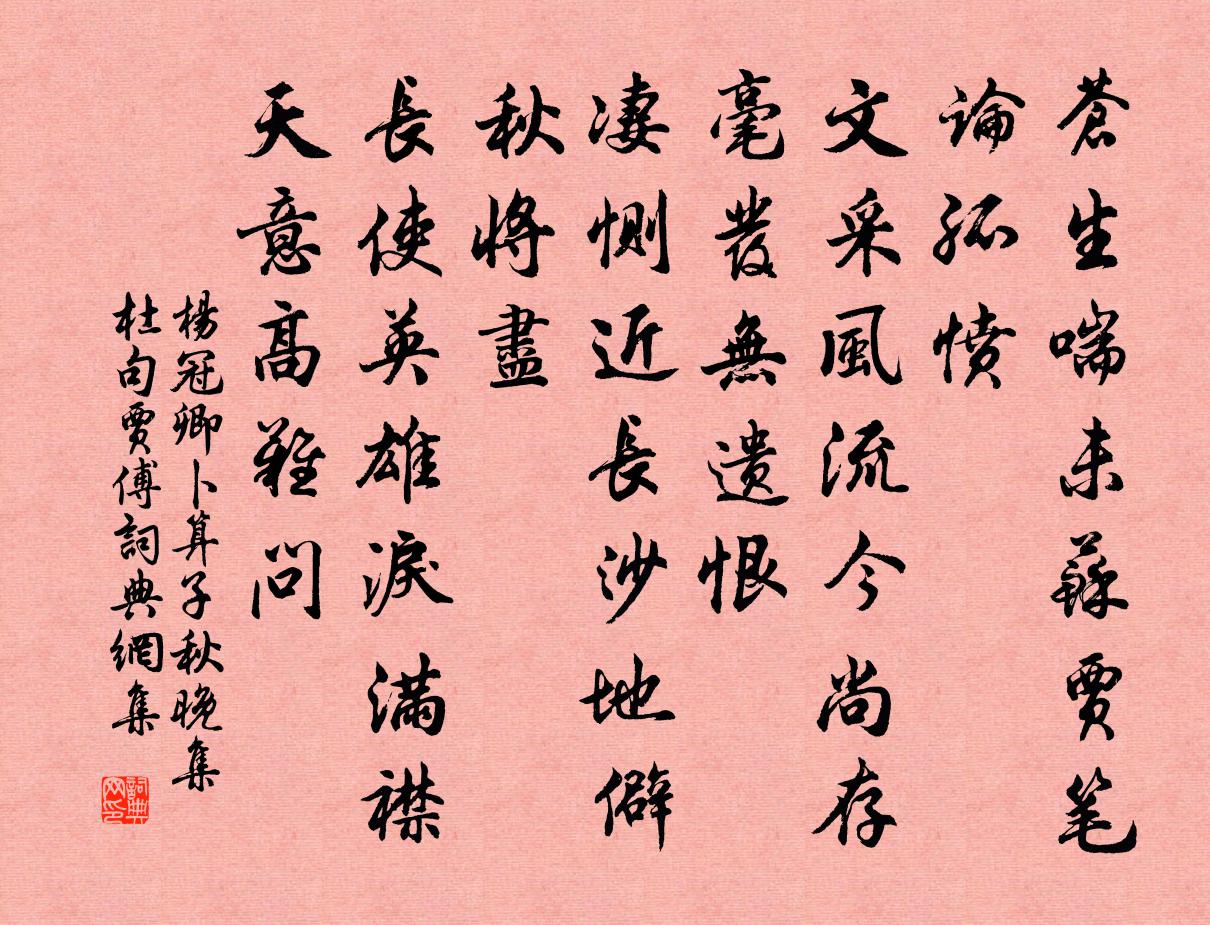 蒼生喘未蘇賈笔
論孤憤
文采風流今尚存
毫發無遺恨
凄惻近長沙地僻
秋將盡
長使英雄淚滿襟
天意高難問
楊冠卿卜算子秋晚集
杜句賈傅詞典網集
詞典网印